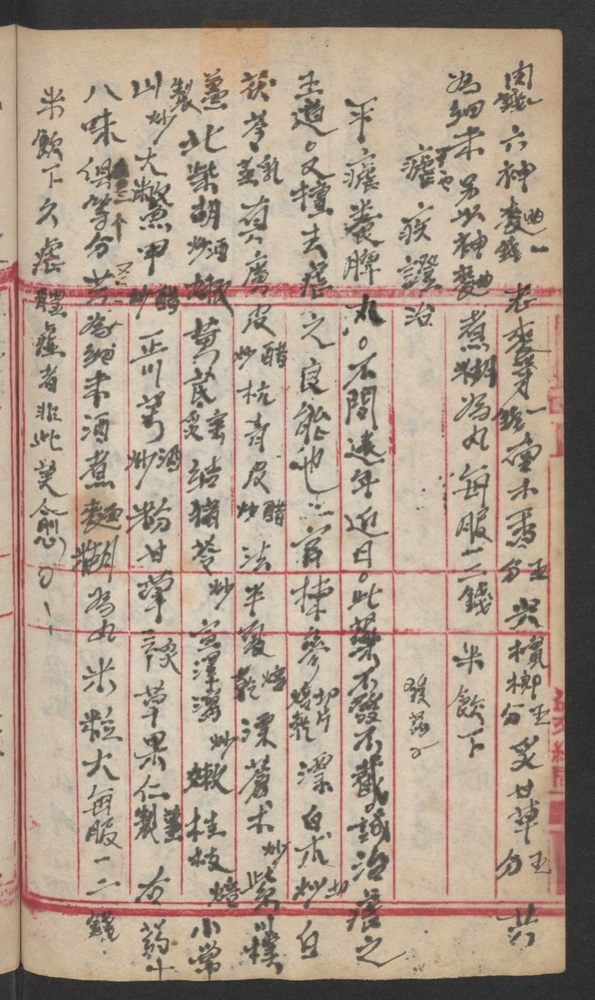 肉錢六神麯一錢 老麥芽一錢 南木香五分 尖檳榔五分 炙甘草五分 共
為細末另以神麯煮糊為丸每服一二錢 米飲下
瘧疾證治
平瘧養脾丸。不問遠年近日。此藥不發不截。誠治瘧之
王道。又擅去瘧之良能也。官揀參切片焙乾 漂白朮土炒 白
茯苓乳蒸 真廣皮醋炒 杭青皮醋炒 法半夏焙乾 漂蒼朮炒 紫川樸
薑製 北柴胡酒炒 黃芪蜜炙 結豬苓炒 宣澤瀉炒 嫩桂枝焙 小常
山炒 大鱉甲醋炒 正川芎酒炒 粉甘草 草果仁薑製 右藥十
八味俱等分共為細末酒煮麵糊為丸米粒大每服一二錢
米飲下久瘧體虛者非此莫愈